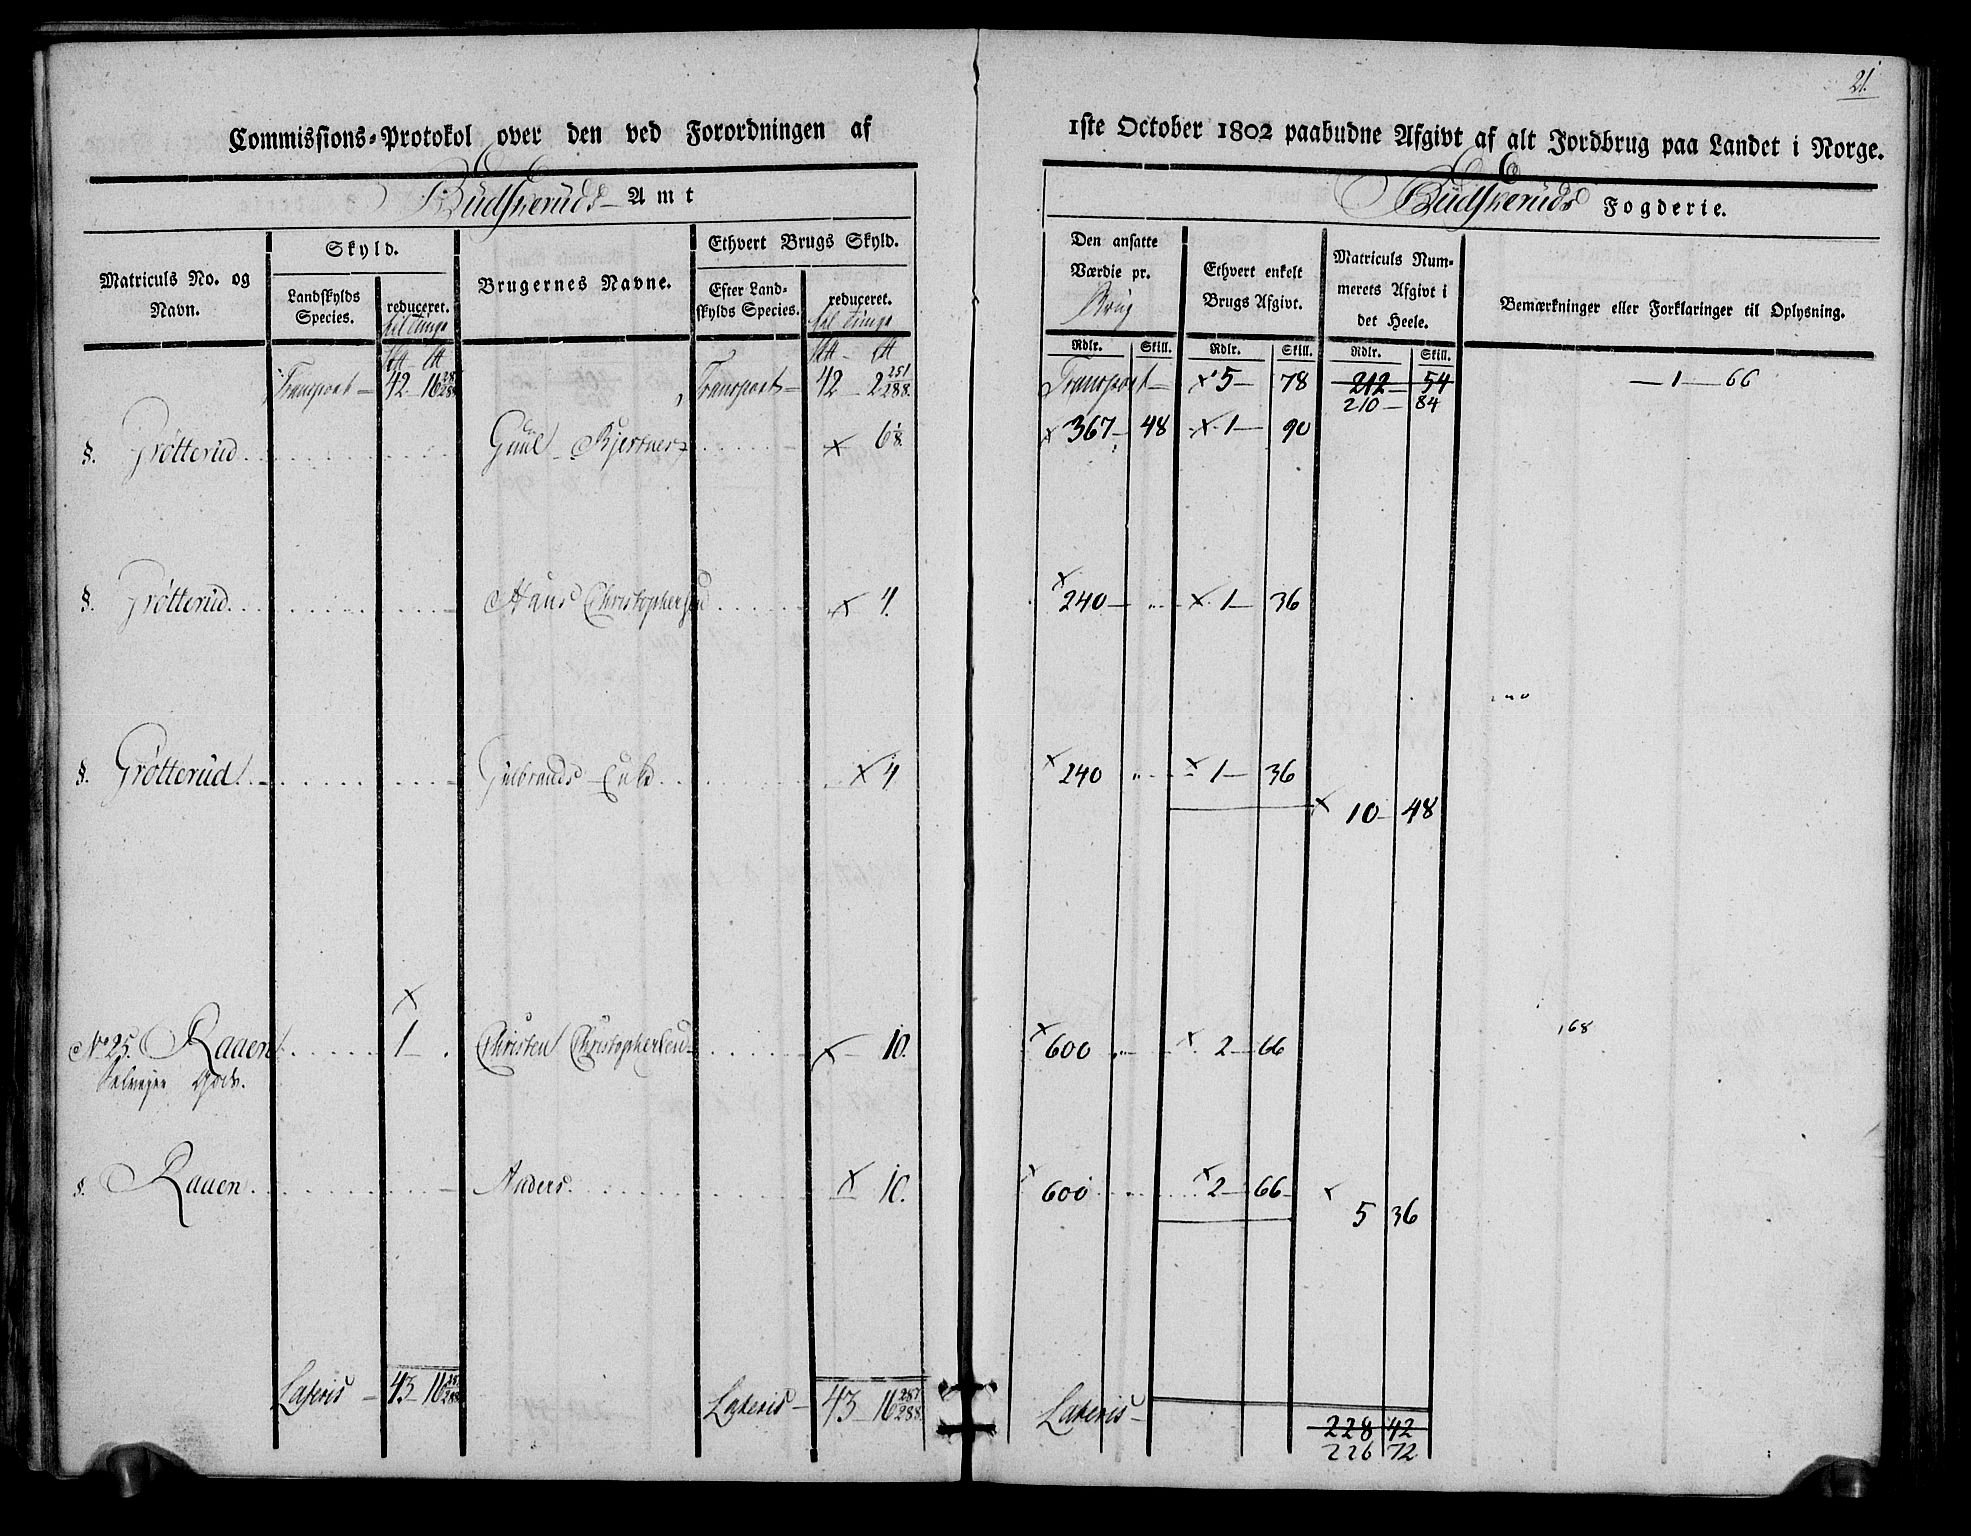 21.
Commissions-Protokol over den ved Forordningen af 1ste October 1802 paabudne Afgivt af alt Jordbrug paa Landet i Norge.
Budskeruds Amt
Budskeruds Fogderie.
Matriculs No. og Navn.
Skyld.
Landskylds Species.
reduceret.
Brugernes Navne.
Ethvert Brugs Skyld.
Efter Landskylds Species.
reduceret.
Den ansatte Værdie pr. Brug
Ethvert enkelt Brugs Afgivt.
Matriculs Nummerets Afgivt i det Heele.
Bemærkninger eller Forklaringer til Oplysning.
Rdlr. Skill. Rdlr. Skill. Rdlr. Skill.
Transport — 42 — 16 Transport — 42 — 2 251/288 Transport — x 5 — 78 212 — 54 — 1 — 66
210 — 84
§. Grötterud Guul Bjerknes x 6 x 367 — 48 x 1 — 90
§. Grøtterud Hans Christophersen x 4. x 240 — „ x 1 — 36
§. Grøtterud Gulbrands Enke x 4 x 240 „ x 1 — 36
x 10 — 48
x
No 25. Raaen 1 Christen Christophersen x 10. x 600 „ x 2 — 66 168
Gods.
§. Raaen Anders x 10. x 600 x 2 — 66
x 5 36
Lateris — 43 — 16 287/288 Lateris — 43 — 16 287/288 Lateris — 228 42
226 72